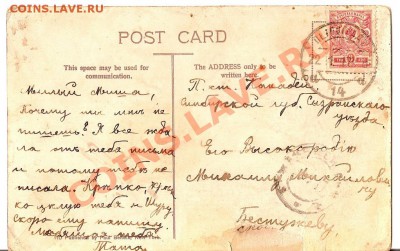 COINS.LAVE.RU
POST CARD
This space may be used for
communication.
The ADDRESS only to be
written here.
Милый Миша,
Почему ты мнѣ не
пишешь? Я все жда
ла отъ тебя письма
и потому тебѣ не
писала. Крѣпко, крѣп
ко цѣлую тебя и Шуру.
Скоро ему напишу.
Тата
П. ст. Канадей
Симбирской губ. Сызранскаго
уѣзда.
Его Высокородію
Михаилу Михайлови
чу
Бестужеву
14
COINS.LAVE.RU